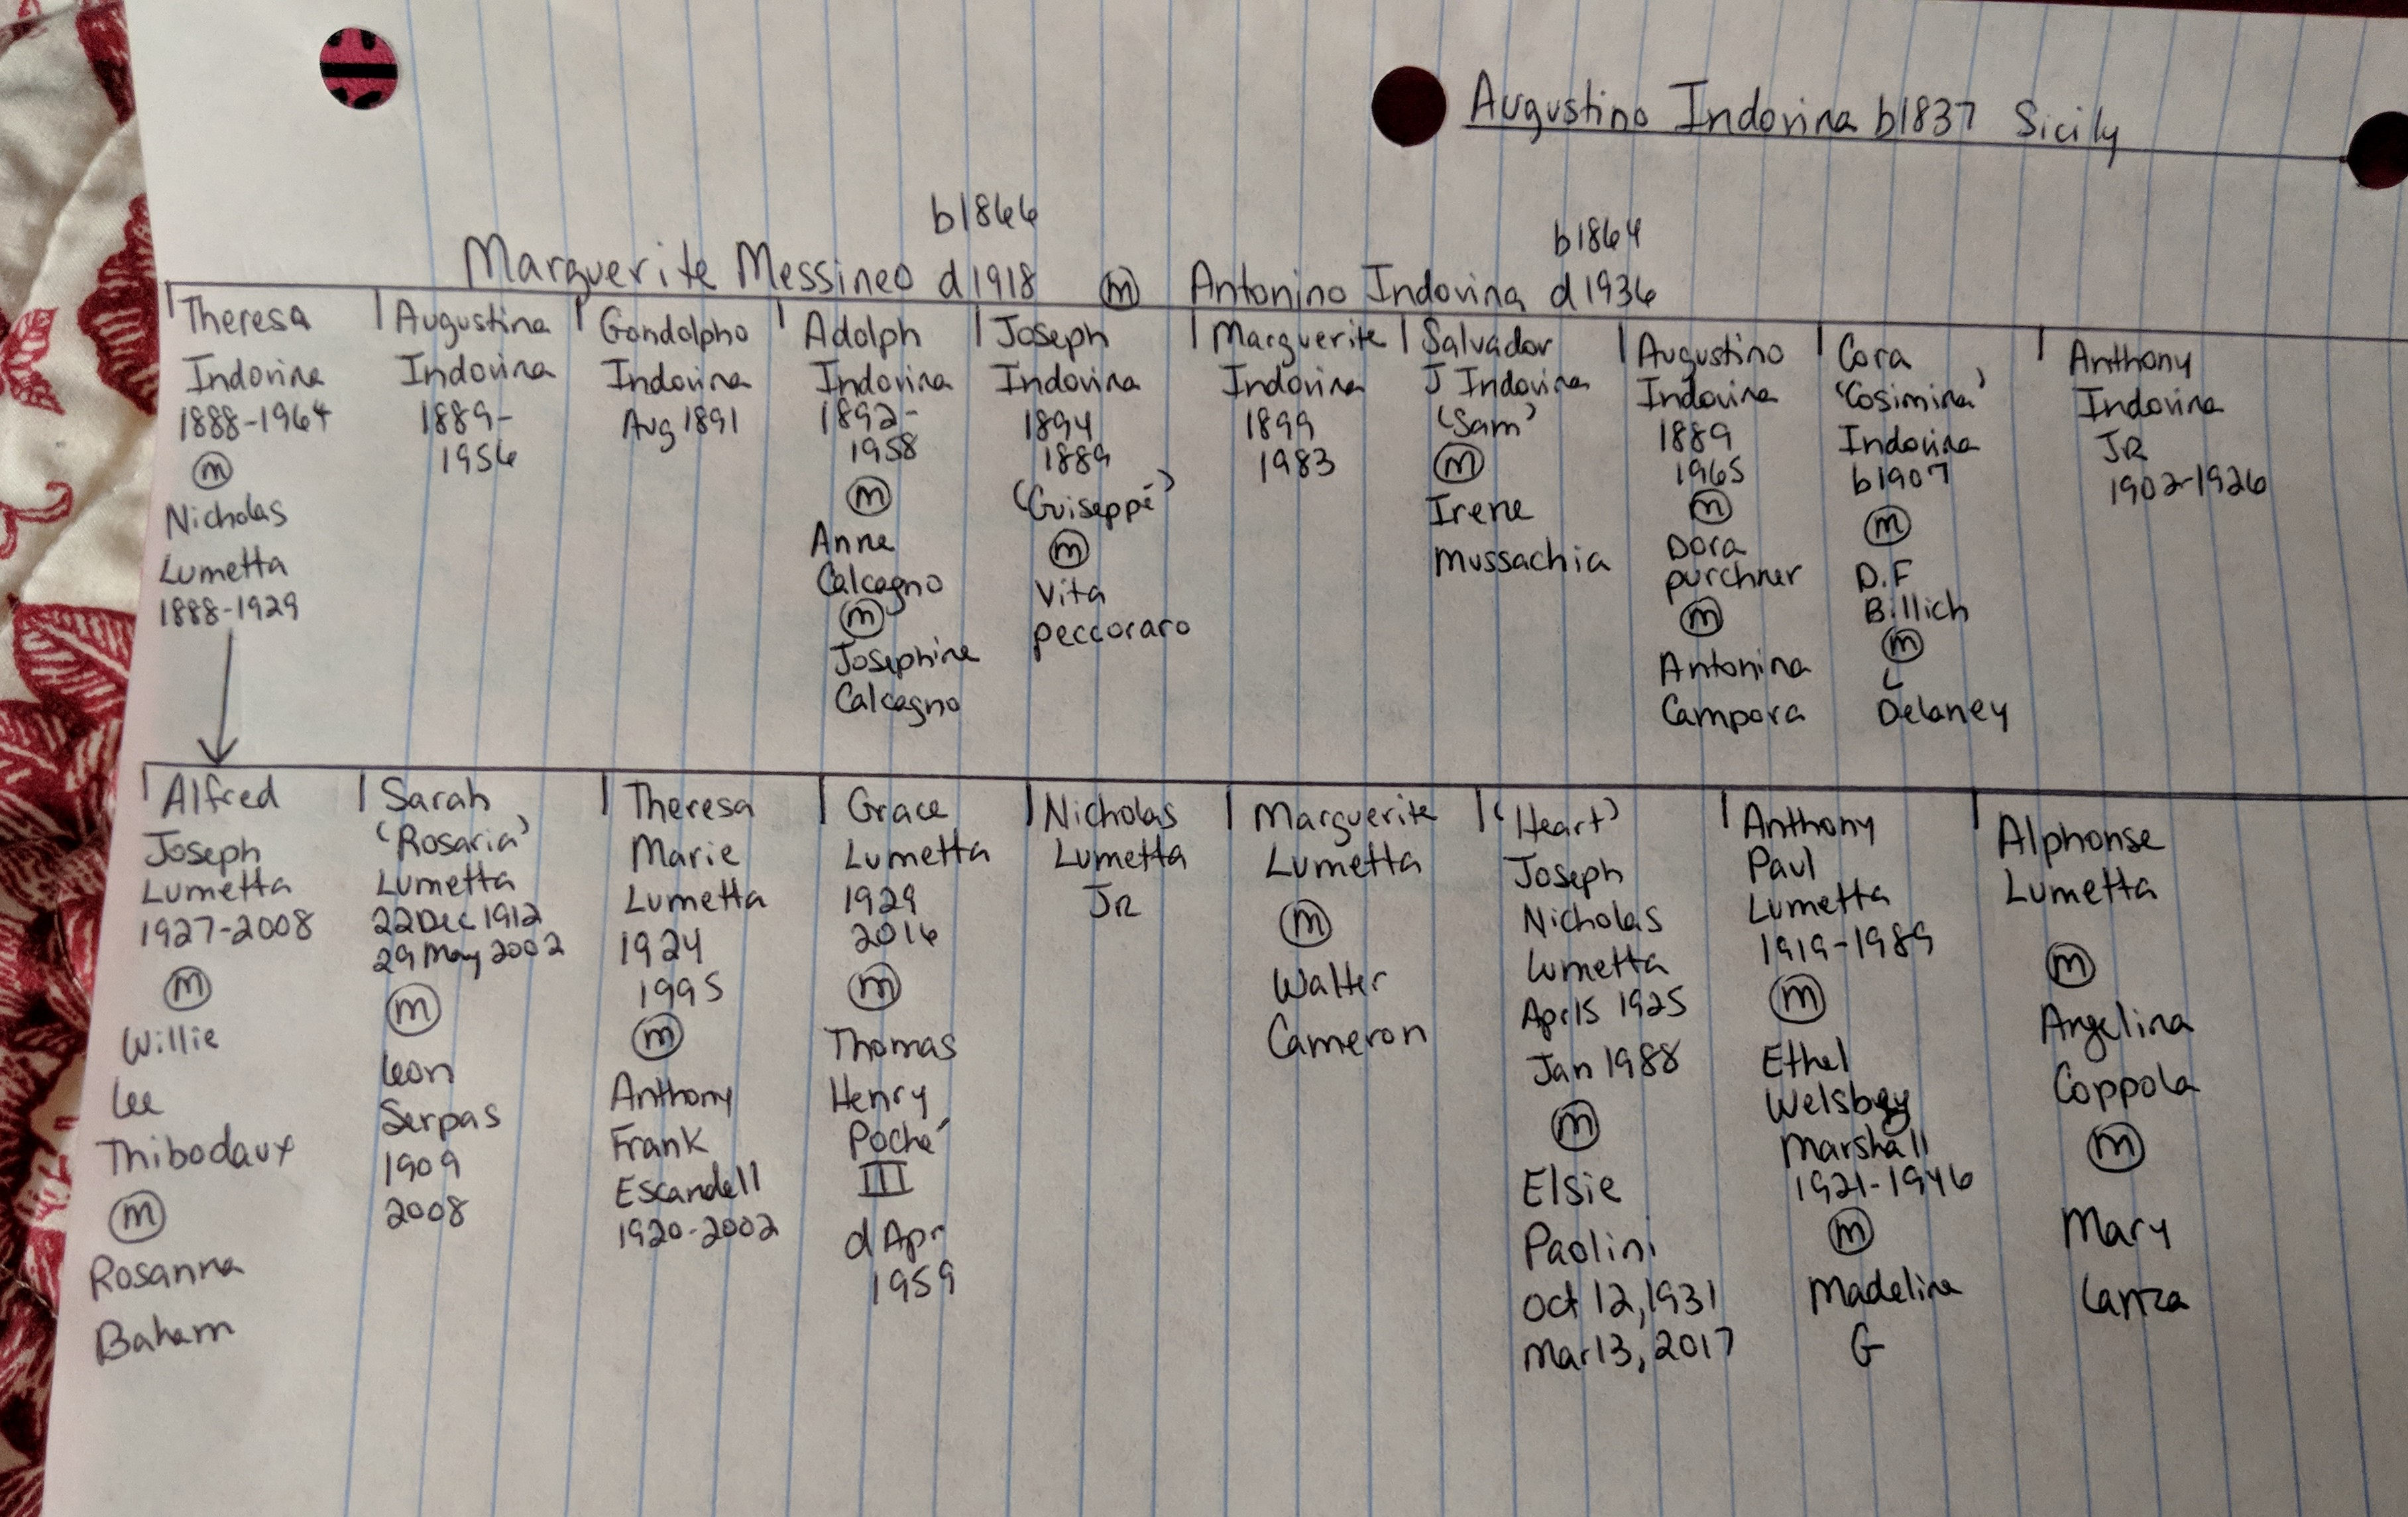 Augustino Indovina b1837 Sicily
b1866
b1864
Marguerite Messineo d1918 m Antonino Indovina d1936
Theresa
Indovina
1888-1964
m
Nicholas
Lumetta
1888-1929
Augustina
Indovina
1889-
1956
Gandolpho
Indovina
Aug 1891
Adolph
Indovina
1892-
1958
m
Anne
Calcagno
m
Josephine
Calcagno
Joseph
Indovina
1894
1889
(Guiseppé)
m
Vita
peccoraro
Marguerite
Indovina
1899
1983
Salvador
J Indovina
(Sam)
m
Irene
Mussachia
Augustino
Indovina
1889
1965
m
Dora
purchner
m
Antonina
Campora
Cora
'Cosimina'
Indovina
b1907
m
D.F
Billich
m
L
Delaney
Anthony
Indovina
JR
1902-1926
Alfred
Joseph
Lumetta
1927-2008
m
Willie
Lee
Thibodaux
m
Rosanna
Baham
Sarah
'Rosaria'
Lumetta
22Dec 1912
29 May 2002
m
Leon
Serpas
1909
2008
Theresa
Marie
Lumetta
1924
1995
m
Anthony
Frank
Escandell
1920-2002
Grace
Lumetta
1929
2016
m
Thomas
Henry
Poché
III
d Apr
1959
Nicholas
Lumetta
JR
Marguerite
Lumetta
m
Walter
Cameron
(Heart)
Joseph
Nicholas
Lumetta
Apr15 1925
Jan 1988
m
Elsie
Paolini
Oct 12, 1931
Mar 13, 2017
Anthony
Paul
Lumetta
1919-1989
m
Ethel
Marshall
1921-1946
m
Madeline
G
Alphonse
Lumetta
m
Angelina
Coppola
m
Mary
Lanza